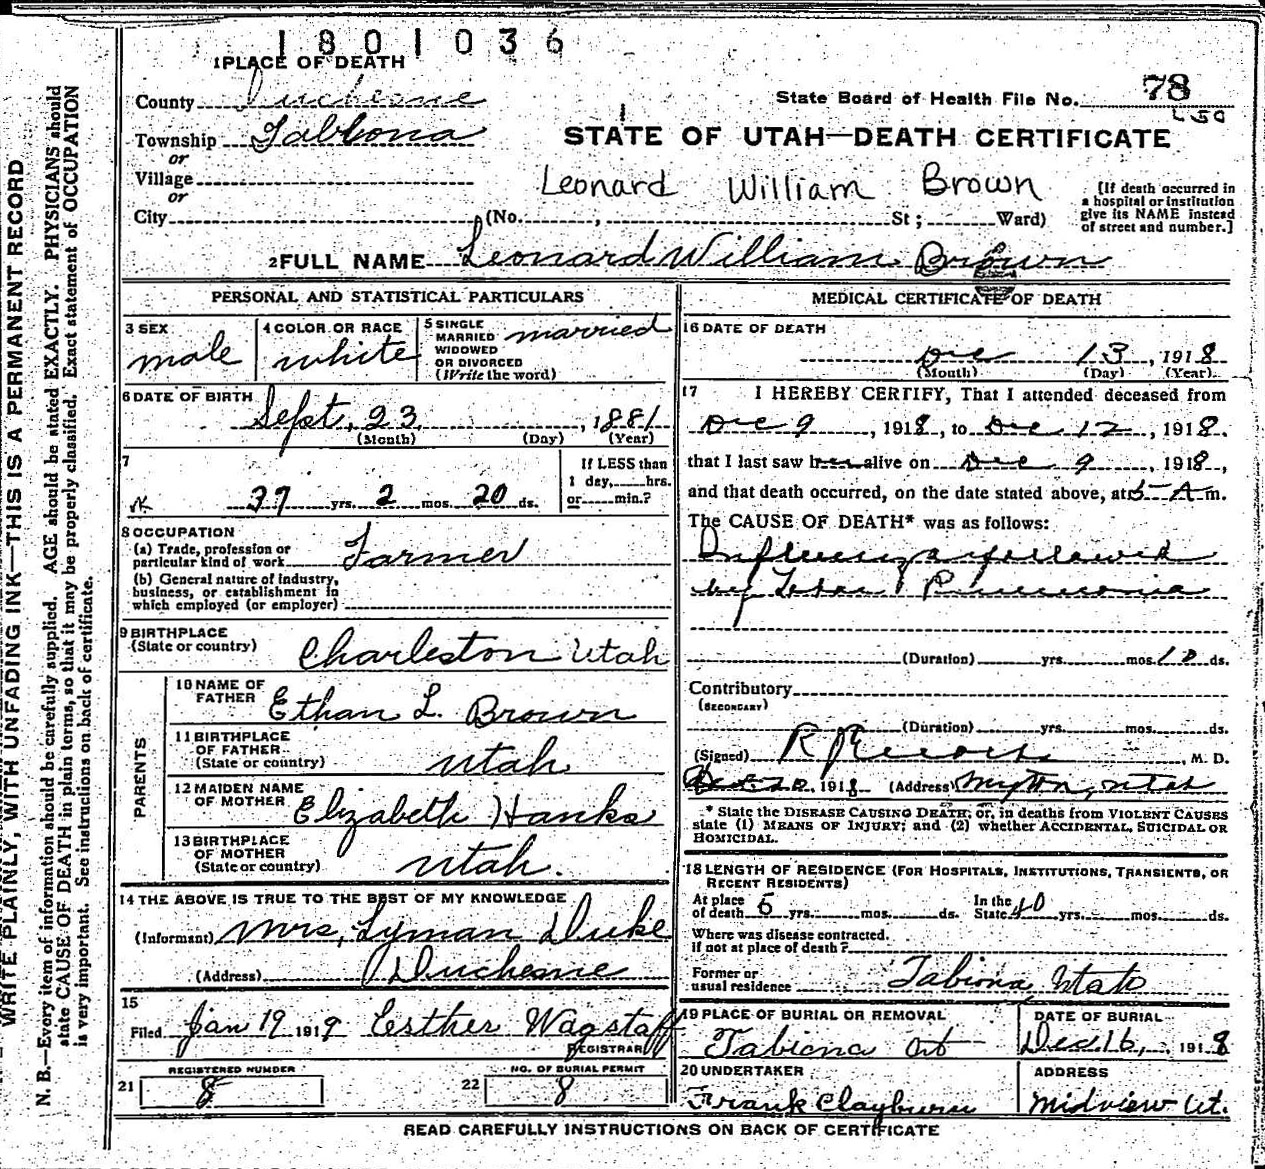 1801036
1 PLACE OF DEATH
County Duchesne
State Board of Health File No. 78
Township Tabbona
STATE OF UTAH—DEATH CERTIFICATE
or
Village
Leonard William Brown
or
City (No. , St ; Ward)
[If death occurred in
a hospital or institution
give its NAME instead
of street and number.]
2 FULL NAME Leonard William Brown
PERSONAL AND STATISTICAL PARTICULARS
3 SEX
male
4 COLOR OR RACE
white
5 SINGLE
MARRIED
WIDOWED
OR DIVORCED
(Write the word)
married
6 DATE OF BIRTH
Sept, 23, 1881
(Month) (Day) (Year)
7
37 yrs. 2 mos. 20 ds.
If LESS than
1 day, hrs.
or min.?
8 OCCUPATION
(a) Trade, profession or
particular kind of work Farmer
(b) General nature of industry,
business, or establishment in
which employed (or employer)
9 BIRTHPLACE
(State or country) Charleston Utah
PARENTS
10 NAME OF
FATHER Ethan L. Brown
11 BIRTHPLACE
OF FATHER
(State or country) Utah
12 MAIDEN NAME
OF MOTHER Elizabeth Hanks
13 BIRTHPLACE
OF MOTHER
(State or country) Utah.
14 THE ABOVE IS TRUE TO THE BEST OF MY KNOWLEDGE
(Informant) Mrs, Lyman Duke
(Address) Duchesne
15
Filed Jan 19 1919 Esther Wagstaff
REGISTRAR
REGISTERED NUMBER
21 8
NO. OF BURIAL PERMIT
22 8
MEDICAL CERTIFICATE OF DEATH
16 DATE OF DEATH
Dec 13, 1918
(Month) (Day) (Year).
17 I HEREBY CERTIFY, That I attended deceased from
Dec 9, 1918, to Dec 12, 1918.
that I last saw h alive on Dec 9, 1918,
and that death occurred, on the date stated above, at 5 A m.
The CAUSE OF DEATH* was as follows:
Influenza followed
by Pneumonia
(Duration) yrs. mos. 10 ds.
Contributory
(SECONDARY)
(Duration) yrs. mos. ds.
(Signed) , M. D.
1918 (Address) Myton, Utah
* State the DISEASE CAUSING DEATH; or, in deaths from VIOLENT CAUSES
state (1) MEANS OF INJURY; and (2) whether ACCIDENTAL, SUICIDAL OR
HOMICIDAL.
18 LENGTH OF RESIDENCE (FOR HOSPITALS, INSTITUTIONS, TRANSIENTS, OR
RECENT RESIDENTS)
At place
of death 5 yrs. mos. ds.
In the
State yrs. mos. ds.
Where was disease contracted.
if not at place of death?
Former or
usual residence Tabiona, Utah
19 PLACE OF BURIAL OR REMOVAL
Tabiona Ut
DATE OF BURIAL
Dec. 16, 1918
20 UNDERTAKER
Frank Clayburn
ADDRESS
Midview Ut.
READ CAREFULLY INSTRUCTIONS ON BACK OF CERTIFICATE
WRITE PLAINLY, WITH UNFADING INK—THIS IS A PERMANENT RECORD
N. B.—Every item of information should be carefully supplied. AGE should be stated EXACTLY. PHYSICIANS should
state CAUSE OF DEATH in plain terms, so that it may be properly classified. Exact statement of OCCUPATION
is very important. See instructions on back of certificate.